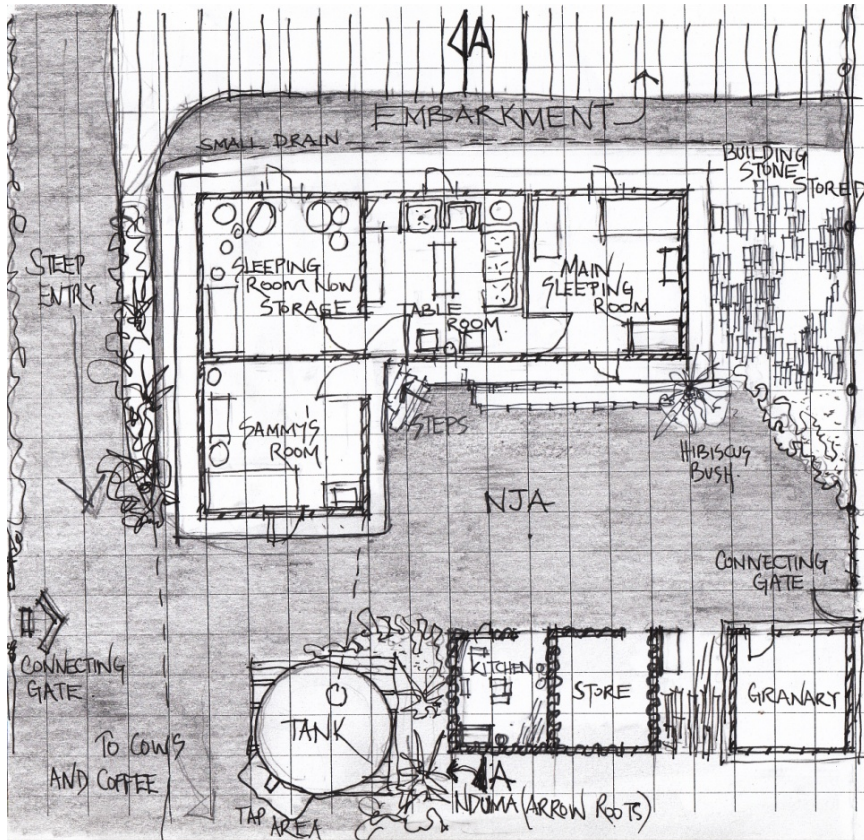 A
EMBARKMENT
SMALL DRAIN
BUILDING
STONE
STORED
STEEP
ENTRY
SLEEPING
ROOM NOW
STORAGE
TABLE
ROOM
MAIN
SLEEPING
ROOM
SAMMY'S
ROOM
STEPS
HIBISCUS
BUSH
NJA
CONNECTING
GATE
CONNECTING
GATE
KITCHEN
STORE
GRANARY
TANK
TO COWS
AND COFFEE
TAP
AREA
A
NDUMA (ARROW ROOTS)